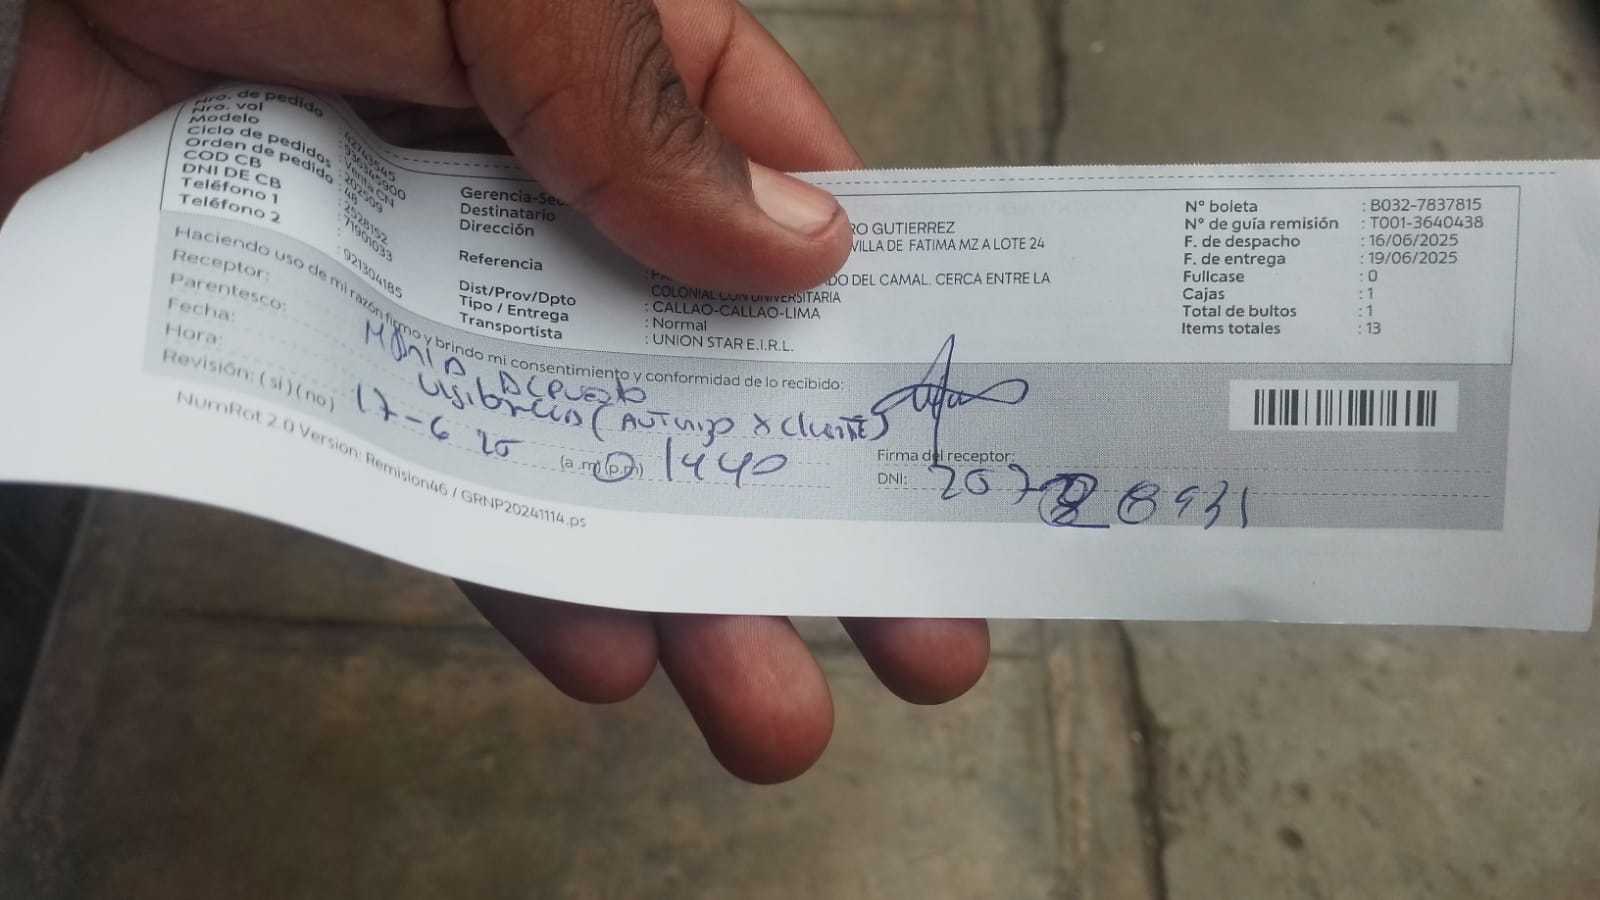 Nro. de pedido : 42743545
Nro. vol : 936345900
Modelo : Venta CN
Ciclo de pedidos : 202509
Orden de pedido : 48
COD CB : 2528192
DNI DE CB : 71901033
Teléfono 1
Teléfono 2 : 921304185
Gerencia-Sec
Destinatario RO GUTIERREZ
Dirección VILLA DE FATIMA MZ A LOTE 24
Referencia DO DEL CAMAL. CERCA ENTRE LA
COLONIAL CON UNIVERSITARIA
Dist/Prov/Dpto : CALLAO-CALLAO-LIMA
Tipo / Entrega : Normal
Transportista : UNION STAR E.I.R.L.
N° boleta : B032-7837815
N° de guía remisión : T001-3640438
F. de despacho : 16/06/2025
F. de entrega : 19/06/2025
Fullcase : 0
Cajas : 1
Total de bultos : 1
Items totales : 13
Haciendo uso de mi razón firmo y brindo mi consentimiento y conformidad de lo recibido:
Receptor:
Parentesco:
Fecha: 17-6
Hora: (a.m) (p.m) 1440
Revisión: (si) (no)
Firma del receptor:
DNI:
NumRot 2.0 Version: Remision46 / GRNP20241114.ps